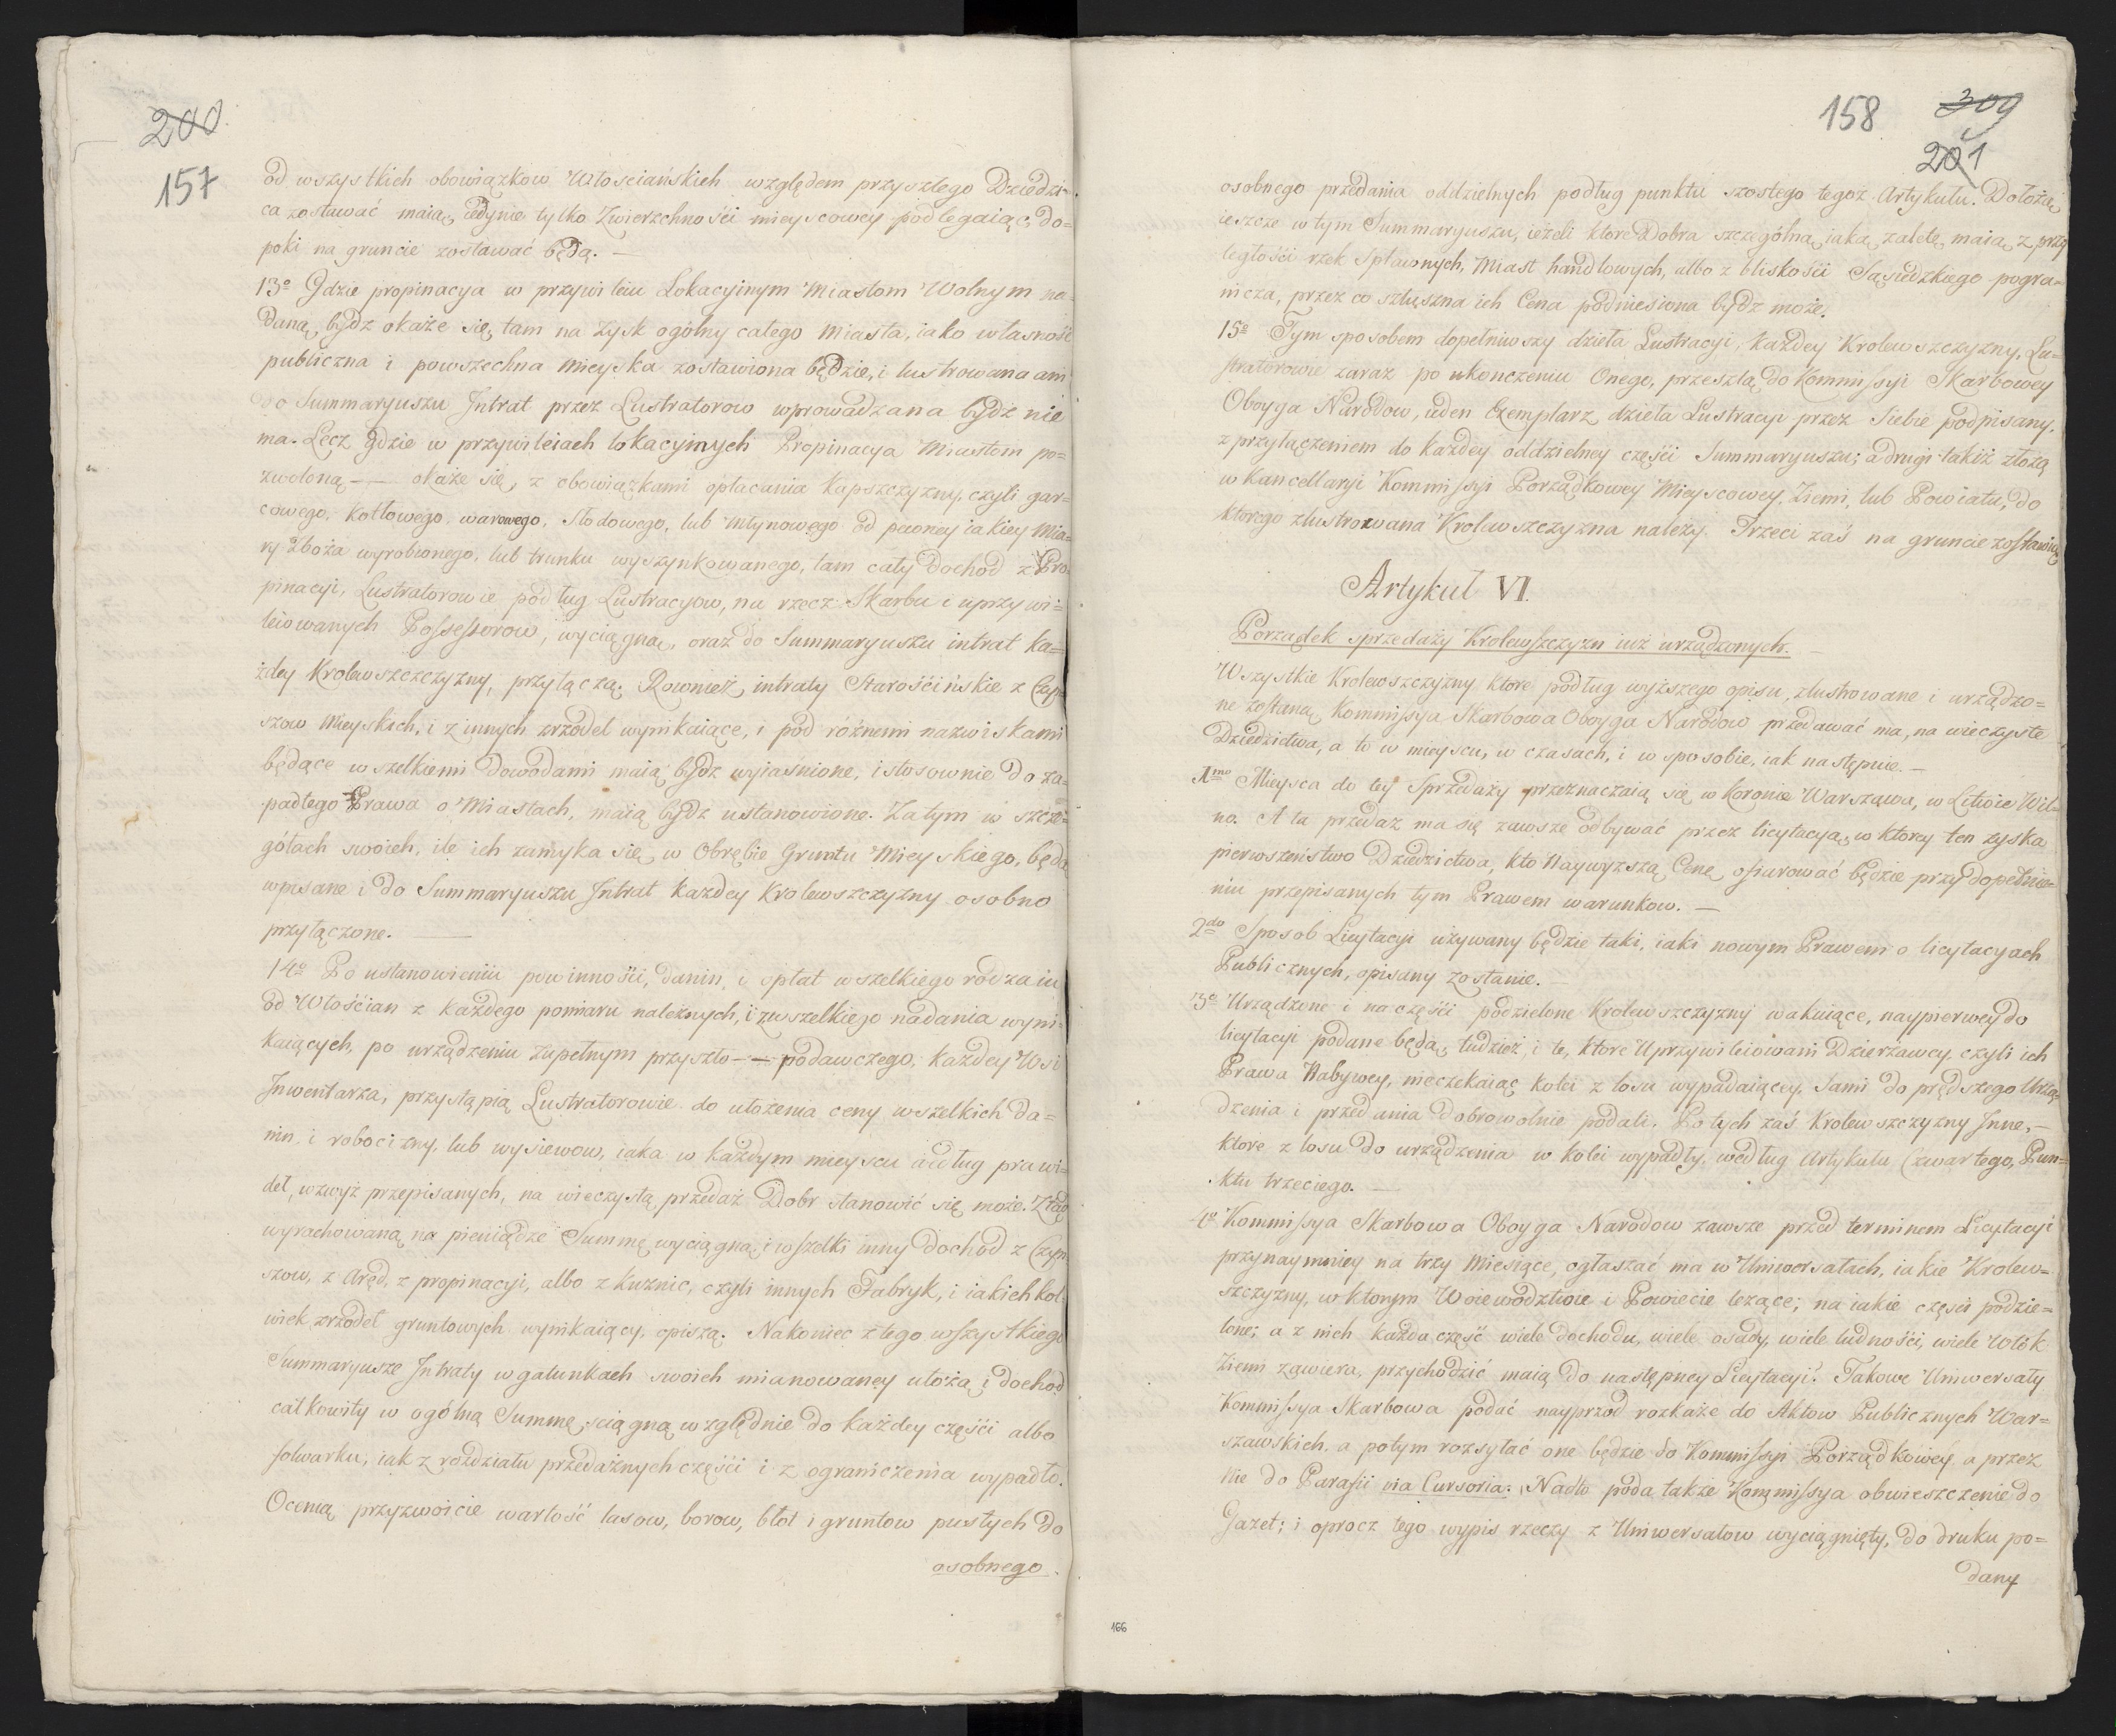 200.
157
od wszystkich obowiązkow Włosciańskich względem przyszłego Dziedzi-
ca zostawać maią, iedynie tylko Zwierzchności mieyscowey podlegaiąc, do=
poki na gruncie zostawać będą. —
13º Gdzie propinacya w przywileiu Lokacyinym Miastom Wolnym na-
daną bydz okaże się, tam na zysk ogólny całego Miasta, iako własność
publiczna i powszechna Mieyska zostawiona będzie, i lustrowana ani
do Summaryuszu Intrat przez Lustratorow wprowadzana bydź nie
ma. Lecz gdzie w przywileiach lokacyinych Propinacya Miastom po=
zwoloną —— okaże się, z obowiązkami opłacania kapszczyzny, czyli gar=
cowego, kotłowego, warowego, słodowego, lub młynowego od pewney iakiey mia-
ry Zboża wyrobionego, lub trunku wyszynkowanego, tam cały dochod z Pro-
pinacyi, Lustratorowie podług Lustracyow, na rzecz Skarbu i uprzywi=
leiowanych Possessorow, wyciągną, oraz do Summaryuszu intrat ka=
żdey Krolewszczczyzny, przyłączą. Rownież intraty Starościńskie z Czyn-
szow Mieyskich, i z innych zrzodeł wynikaiące, i pod różnemi nazwiskami
będące wszelkiemi Dowodami maią bydz wyiasnione, i stosownie do za-
padłego Prawa o Miastach, maią bydz ustanowione. Zatym w szcze-
gółach swoich, ile ich zamyka się w Obrębie Gruntu Mieyskiego, będą
wpisane i do Summaryuszu Intrat każdey Krolewszczyzny osobno
przyłączone. ——
14º Po ustanowieniu powinności, Danin, i opłat wszelkiego rodzaiu
od Włościan z każdego pomiaru należnych, i z wszelkiego nadania wyni-
kaiących, po urządzeniu zupełnym przyszło —— podawczego, każdey Wsi
Inwentarza, przystąpią Lustratorowie do ułożenia ceny wszelkich da=
nin, i robocizny, lub wysiewow, iaka w każdym mieyscu według prawi-
deł, wzwyż przepisanych, na wieczystą przedaż Dobr stanowić się może. Ztąd
wyrachowaną na pieniądze Summę wyciągną, i wszelki inny dochod z Czyn-
szow, z Aręd, z propinacyi, albo z kuznic, czyli innych Fabryk, i iakichkol-
wiek zrzodeł gruntowych wynikaiący, opiszą. Nakoniec z tego wszystkiego
Summaryusze Intraty w gatunkach swoich mianowaney ułożą i dochod
całkowity w ogólną Summę sciągną względnie do każdey części albo
folwarku, iak z rozdziału przedażnych części i z ograniczenia wypadło.
Ocenią przyzwoicie wartość lasow, borow, błot i gruntow pustych do
osobnego.
158
309
201
osobnego przedania oddzielnych podług punktu szostego tegoż Artykułu. Dołożą
ieszcze w tym Summaryuszu, ieżeli ktore Dobra szczególną iaką zaletę maią z przy
ległości rzek Spławnych, Miast handlowych, albo z bliskości Sąsiedzkiego pogra=
nicza, przez co sztuszna ich Cena podniesiona bydz może.
15º Tym sposobem dopełniwszy dzieła Lustracyi, każdey Krolewszczyzny, Lu=
stratorowie zaraz po ukonczeniu Onego, przeszlą do Kommissyi Skarbowey
Oboyga Narodow, ieden Exemplarz dzieła Lustracyi przez Siebie podpisany.
z przyłączeniem do każdey oddzielney części Summaryuszu; a drugi takiż złożą
w Kancellaryi Kommissyi Porządkowey Mieyscowey, Ziemi, lub Powiatu, do
ktorego zlustrowana Krolewszczyzna należy. Trzeci zaś na gruncie zostawią
Artykuł VI.
Porządek sprzedaży Krolewszczyzn iuż urządzonych.
Wszystkie Krolewszczyzny ktore podług wyższego opisu, zlustrowane i urządzo=
ne zostaną Kommissya Skarbowa Oboyga Narodow przedawać ma, na wieczyste
Dziedzictwa, a to w mieyscu, w czasach, i w sposobie, iak następuie. —
1mo Mieysca do tey Sprzedaży przeznaczaią się w Koronie Warszawa, w Litwie Wil=
no. A ta przedaż ma się zawsze odbywać przez licytacyą, w ktorey ten zyska
pierwszeństwo Dziedzictwa, kto Naywyższą Cenę ofiarować będzie przy dopełnie=
niu przepisanych tym Prawem warunkow. —
2do Sposob Licytacyi używany będzie taki, iaki nowym Prawem o licytacyach
Publicznych, opisany zostanie. —
3º Urządzone i na części podzielone Krolewszczyzny wakuiące, naypierwey do
licytacyi podane będą, tudzież i te, ktore Uprzywileiowani Dzierzawcy, czyli ich
Prawa Nabywcy, nieczekaiąc kolei z losu wypadaiącey, sami do prędszego Urzą-
dzenia i przedania dobrowolnie podali. Po tych zaś Krolewszczyzny Inne, —
ktore z losu do urządzenia w kolei wypadły, według Artykułu Czwartego, Pun=
ktu trzeciego. —
4º Kommissya Skarbowa Oboyga Narodow zawsze przed terminem Licytacyi
przynaymniey na trzy Miesiące, ogłaszać ma w Uniwersałach, iakie Krolew=
szczyzny, w ktorym Woiewodztwie i Powiecie leżące; na iakie części podzie=
lone; a z nich każda część wiele dochodu, wiele osady, wiele ludności, wiele Włók
Ziemi zawiera, przychodzić maią do następney Licytacyi? Takowe Uniwersały
Kommissya Skarbowa podać nayprzod rozkaże do Aktow Publicznych War=
szawskich, a potym rozsyłać one będzie do Kommissyi Porządkowey, a przez
nie do Parafii via Cursoria. Nadto poda także Kommissya obwieszczenie do
Gazet; i oprocz tego wypis rzeczy z Uniwersałow wyciągnięty, do druku po=
dany
166